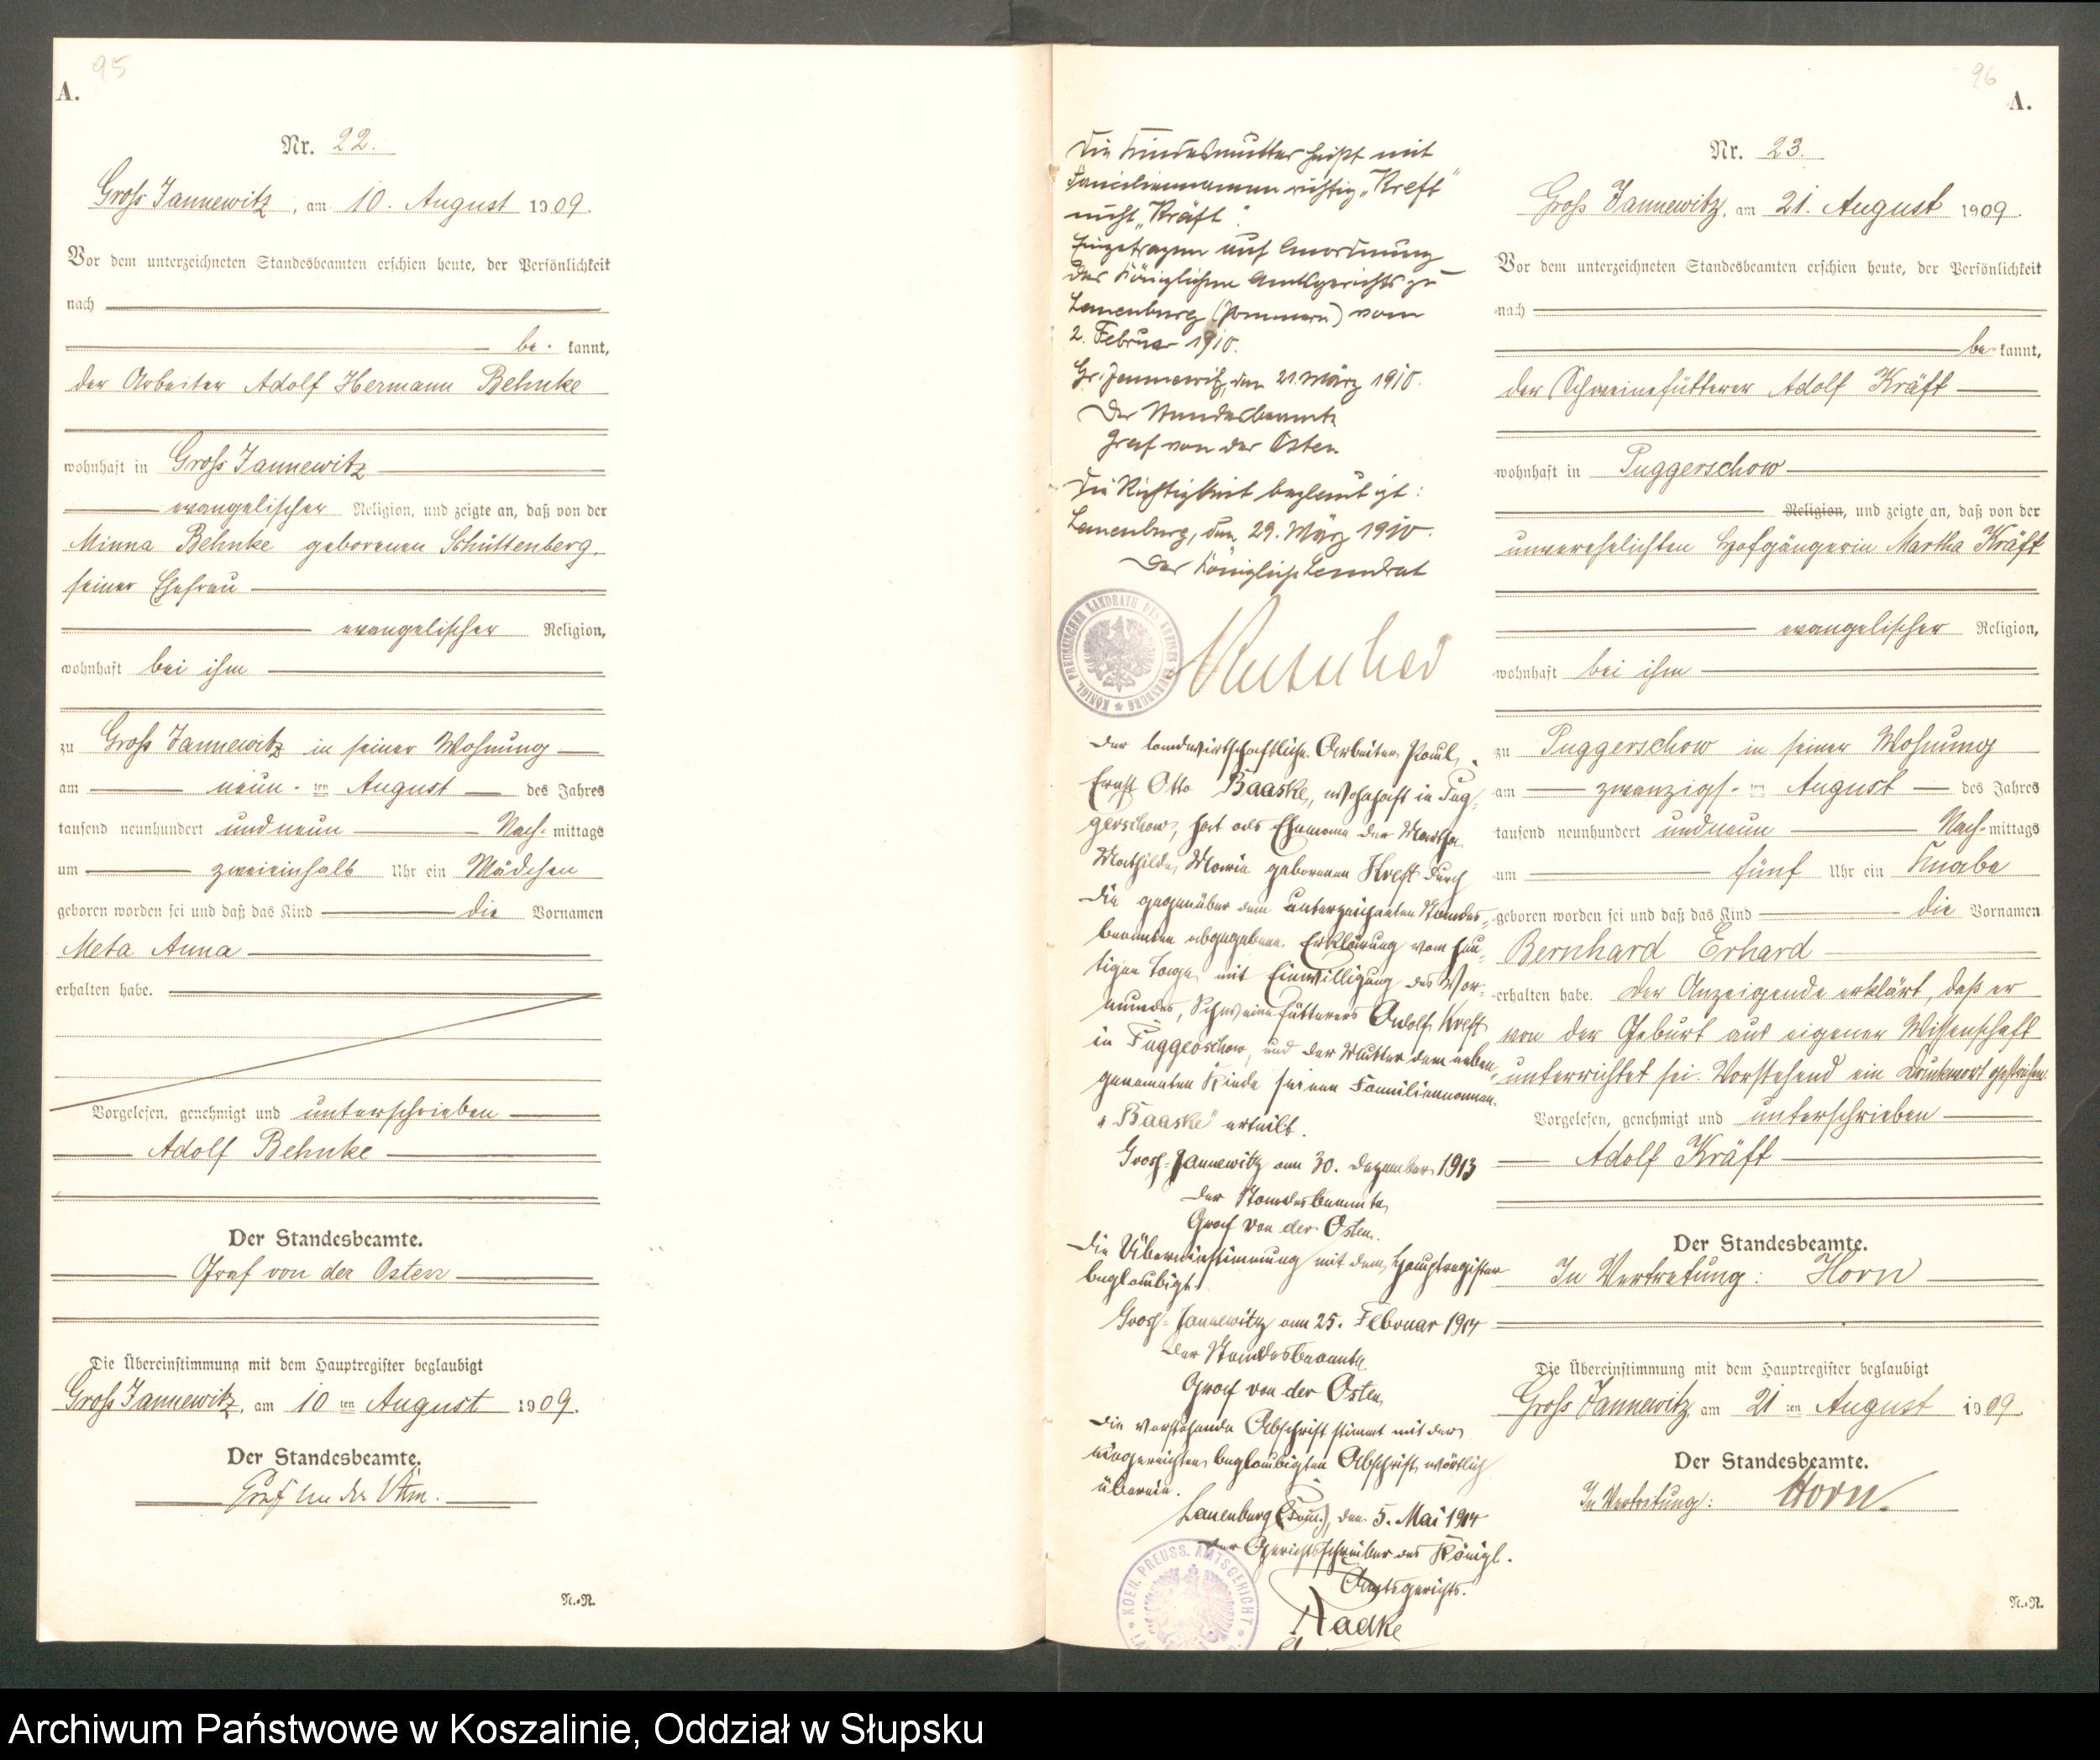 95
A.
Nr. 22.
Groß Jannewitz, am 10. August 1909.
Vor dem unterzeichneten Standesbeamten erschien heute, der Persönlichkeit
nach
be- kannt,
der Arbeiter Adolf Hermann Behnke
wohnhaft in Groß Jannewitz
evangelischer Religion, und zeigte an, daß von der
Minna Behnke geborenen Schüttenberg,
seiner Ehefrau
evangelischer Religion,
wohnhaft bei ihm
zu Groß Jannewitz in seiner Wohnung
am neun-ten August des Jahres
tausend neunhundert und neun Nach-mittags
um zweieinhalb Uhr ein Mädchen
geboren worden sei und daß das Kind die Vornamen
Meta Anna
erhalten habe.
Vorgelesen, genehmigt und unterschrieben
Adolf Behnke
Der Standesbeamte.
Graf von der Osten
Die Übereinstimmung mit dem Hauptregister beglaubigt
Groß Jannewitz, am 10ten August 1909.
Der Standesbeamte.
Graf von der Osten.
N.=R.
Die Kindesmutter heißt mit
Familiennamen richtig „Kreft"
nicht „Kräft".
Eingetragen auf Anordnung
des Königlichen Amtsgerichts zu
Lauenburg (Pommern) vom
2. Februar 1910.
Gr. Jannewitz, den 21. März 1910.
Der Standesbeamte
Graf von der Osten
Die Richtigkeit beglaubigt:
Lauenburg, den 29. März 1910.
Der Königliche Landrat
KÖNIGL. PREUSSISCHER LANDRATH DES KREISES LAUENBURG
Der landwirtschaftliche Arbeiter Paul
Ernst Otto Baaske, wohnhaft in Pug-
gerschow, hat als Ehemann der Martha
Mathilde Maria geborenen Kreft durch
die gegenüber dem unterzeichneten Standes-
beamten abgegebene Erklärung vom heu-
tigen Tage mit Einwilligung des Vor-
mundes, Schweinefütterers Adolf Kreft
in Puggerschow, und der Mutter dem neben-
genannten Kinde seinen Familiennamen
„Baaske" erteilt.
Groß-Jannewitz am 30. Dezember 1913
Der Standesbeamte
Graf von der Osten.
Die Übereinstimmung mit dem Hauptregister
beglaubigt
Groß-Jannewitz am 25. Februar 1914
Der Standesbeamte
Graf von der Osten
Die vorstehende Abschrift stimmt mit der
eingereichten beglaubigten Abschrift wörtlich
überein.
Lauenburg (Pom.), den 5. Mai 1914
Der Gerichtsschreiber des Königl.
Amtsgerichts.
Radke
KOEN. PREUSS. AMTSGERICHT
96
A.
Nr. 23.
Groß Jannewitz, am 21. August 1909.
Vor dem unterzeichneten Standesbeamten erschien heute, der Persönlichkeit
nach
be-kannt,
der Schweinefütterer Adolf Kräft
wohnhaft in Puggerschow
Religion, und zeigte an, daß von der
unverehelichten Hofgängerin Martha Kräft
evangelischer Religion,
wohnhaft bei ihm
zu Puggerschow in seiner Wohnung
am zwanzigs-ten August des Jahres
tausend neunhundert und neun Nach-mittags
um fünf Uhr ein Knabe
geboren worden sei und daß das Kind die Vornamen
Bernhard Erhard
erhalten habe. Der Anzeigende erklärt, daß er
von der Geburt aus eigener Wissenschaft
unterrichtet sei. Vorstehend ein Druckwort gestrichen.
Vorgelesen, genehmigt und unterschrieben
Adolf Kräft
Der Standesbeamte.
In Vertretung: Horn
Die Übereinstimmung mit dem Hauptregister beglaubigt
Groß Jannewitz, am 21ten August 1909.
Der Standesbeamte.
In Vertretung: Horn.
N.=R.
Archiwum Państwowe w Koszalinie, Oddział w Słupsku